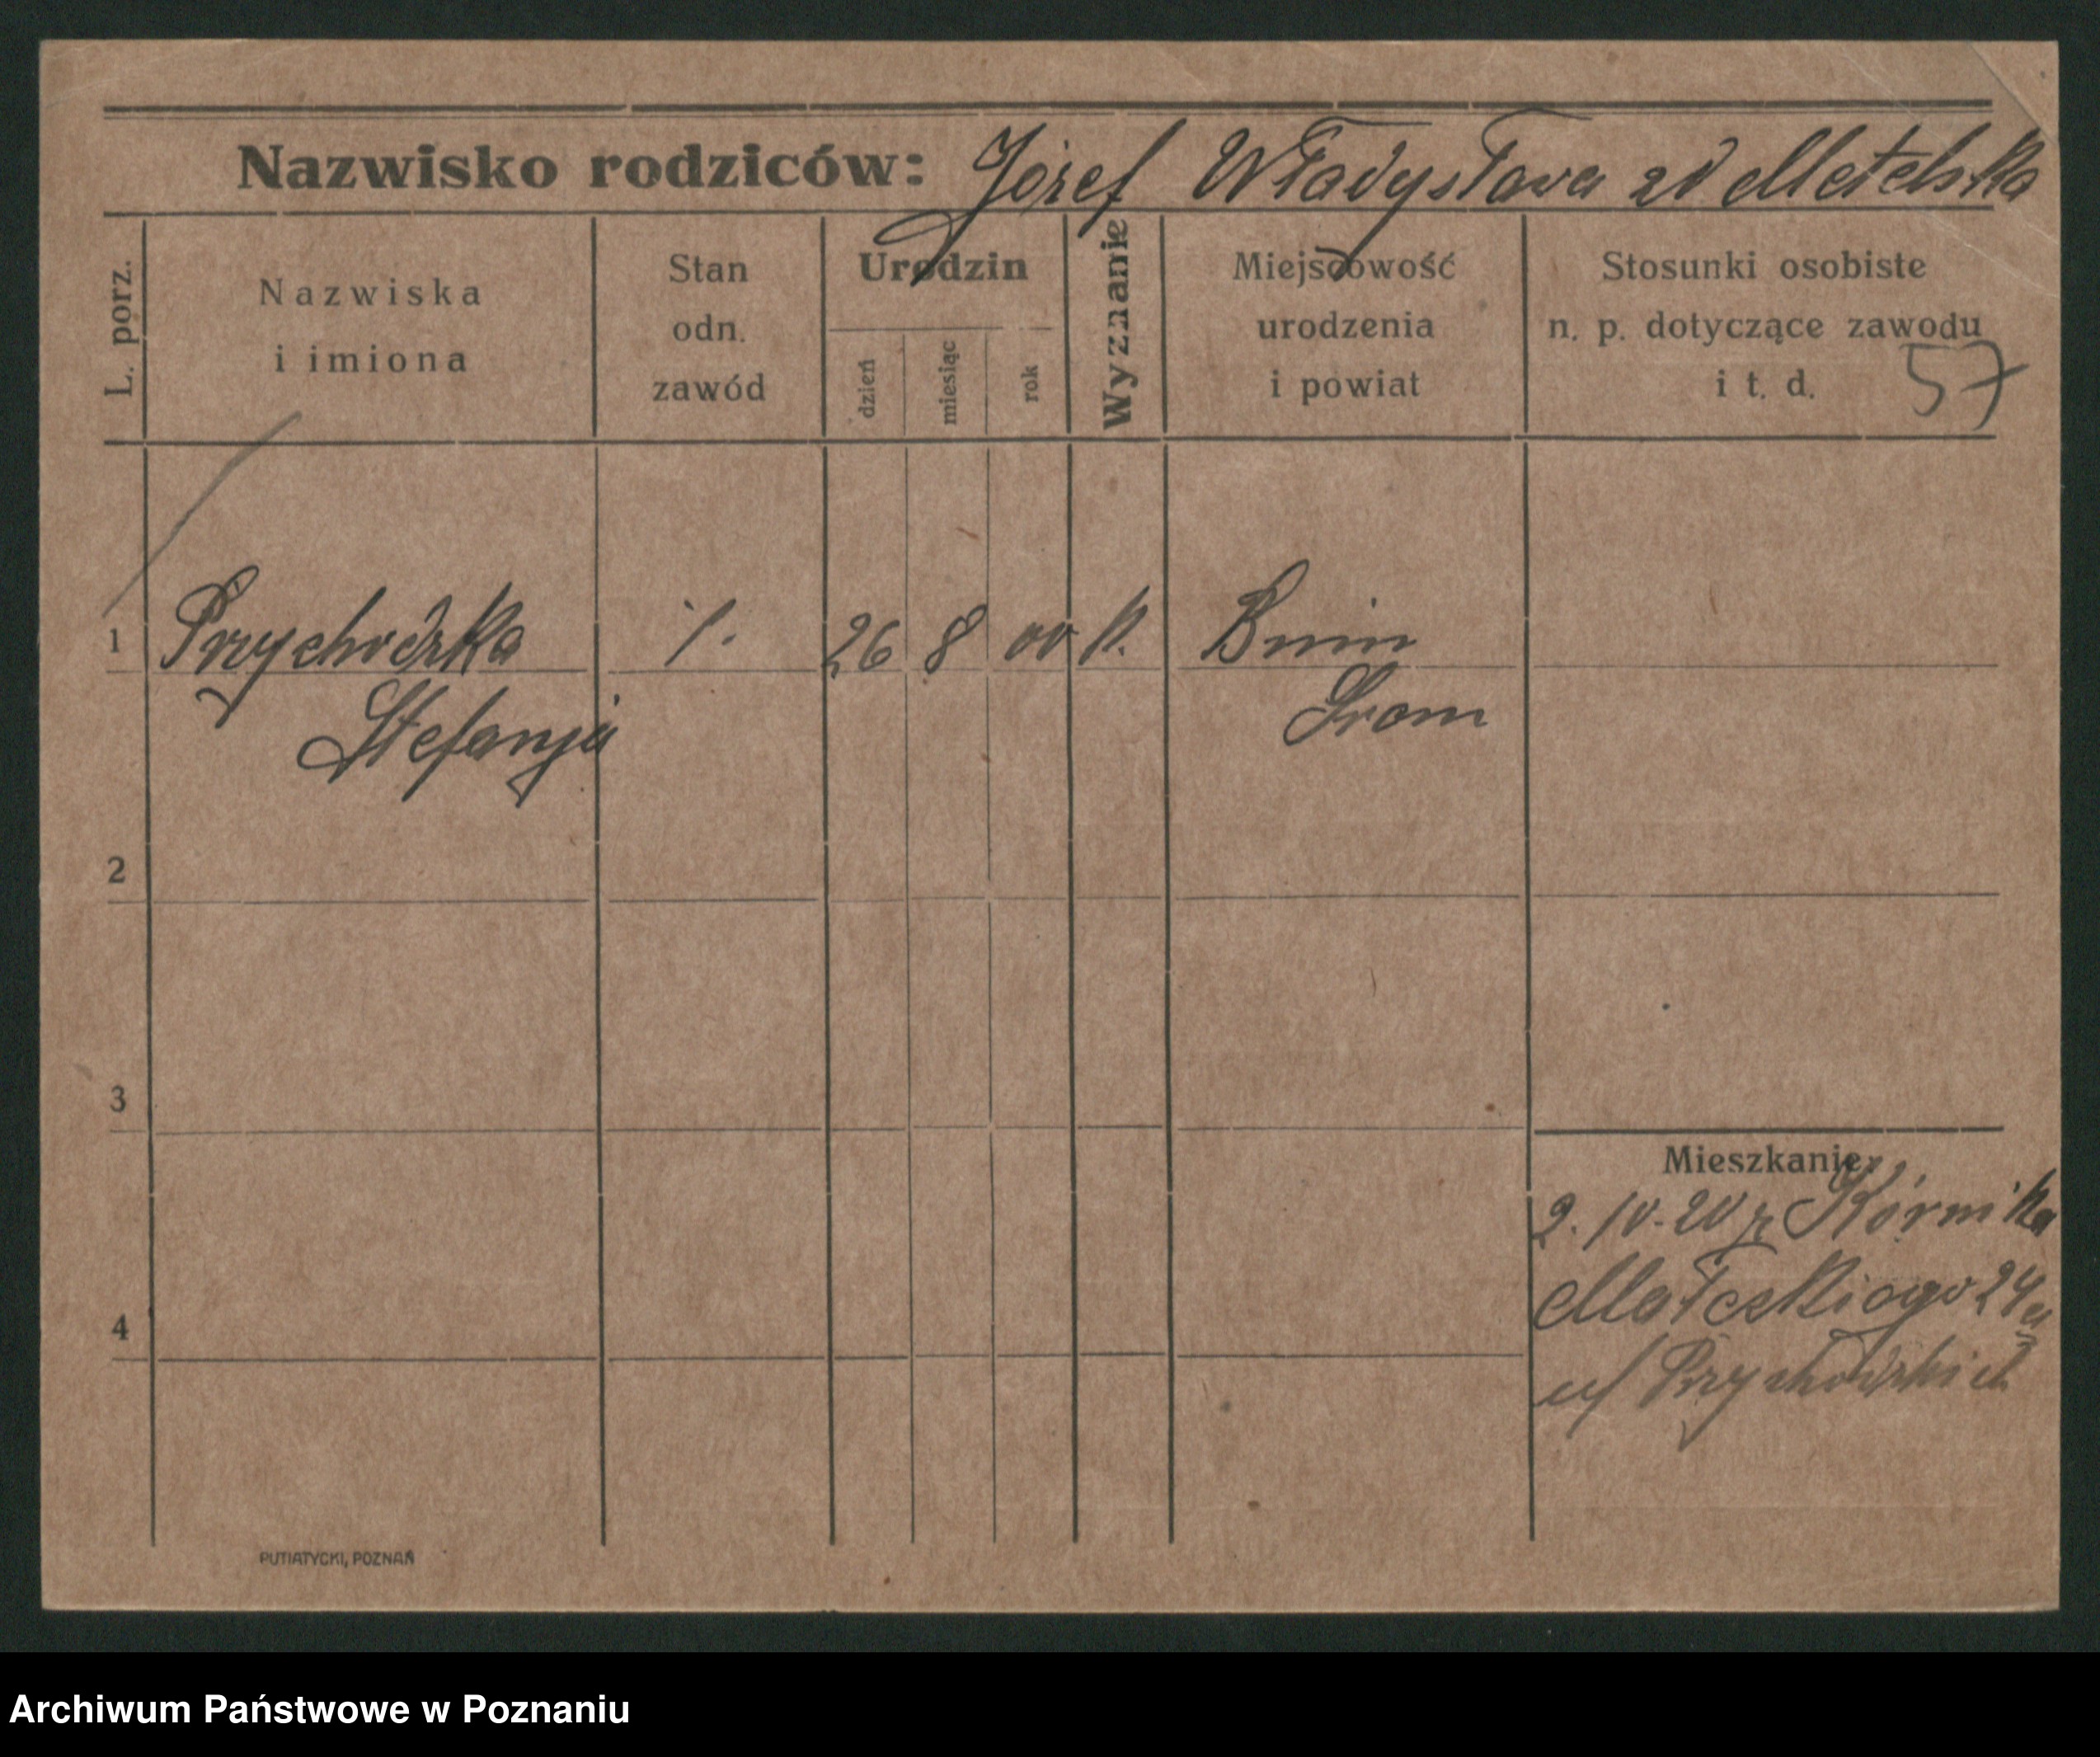 Nazwisko rodziców: Józef Władysława zd Metelska
L. porz.
Nazwiska
i imiona
Stan
odn.
zawód
Urodzin
dzień
miesiąc
rok
Wyznanie
Miejscowość
urodzenia
i powiat
Stosunki osobiste
n. p. dotyczące zawodu
i t. d.
57
1 Przychodzka /. 26 8 00 k. Bnin
Stefanja Śrem
2
3
4
Mieszkanie:
2. IV. 20 z Kórnika
Małeckiego 24
u/ Przychodzkich
PUTIATYCKI, POZNAŃ
Archiwum Państwowe w Poznaniu